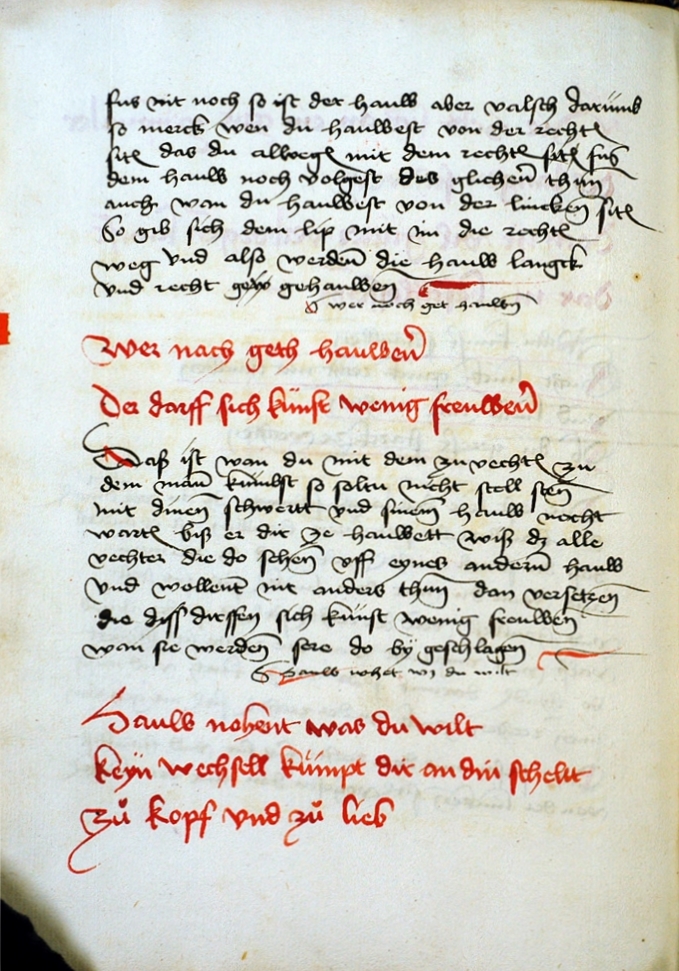 fus nit noch so ist der hauw aber valsch darumb
so merck wen du hauwest von der recht
sit das du allweg mit dem recht fus
dem hauw noch volgest des glichen thun
auch wan du hauwest von der lincken sit
So gib sich dem lip mit im die recht
weg vnd also werden die hauw langck
vnd recht gehauwen
wer noch get hauwen
Wer nach geth hauwen̄
Der darff sich kůnst wenig freuwen̄
Daß ist wan du mit dem zuvecht zu
dem man̄ kumbst so soltu nicht stell sten̄
mit dinen̄ schwertt vnd sinem̄ hauw nocht
wart biß er dir ze hauwett wiß dz alle
vechter die do sehen̄ vff eynes andern̄ hauw
vnd wollent nit anders thun̄ dan versetzen̄
die sich kůnst wenig freuwen
wan sie werden̄ sere do by geschlagen̄
Hauw was du wilt
Hauw nohent was du wilt
keyn wechsell kůmpt dir an din schelt
zů kopf vnd zů lieb